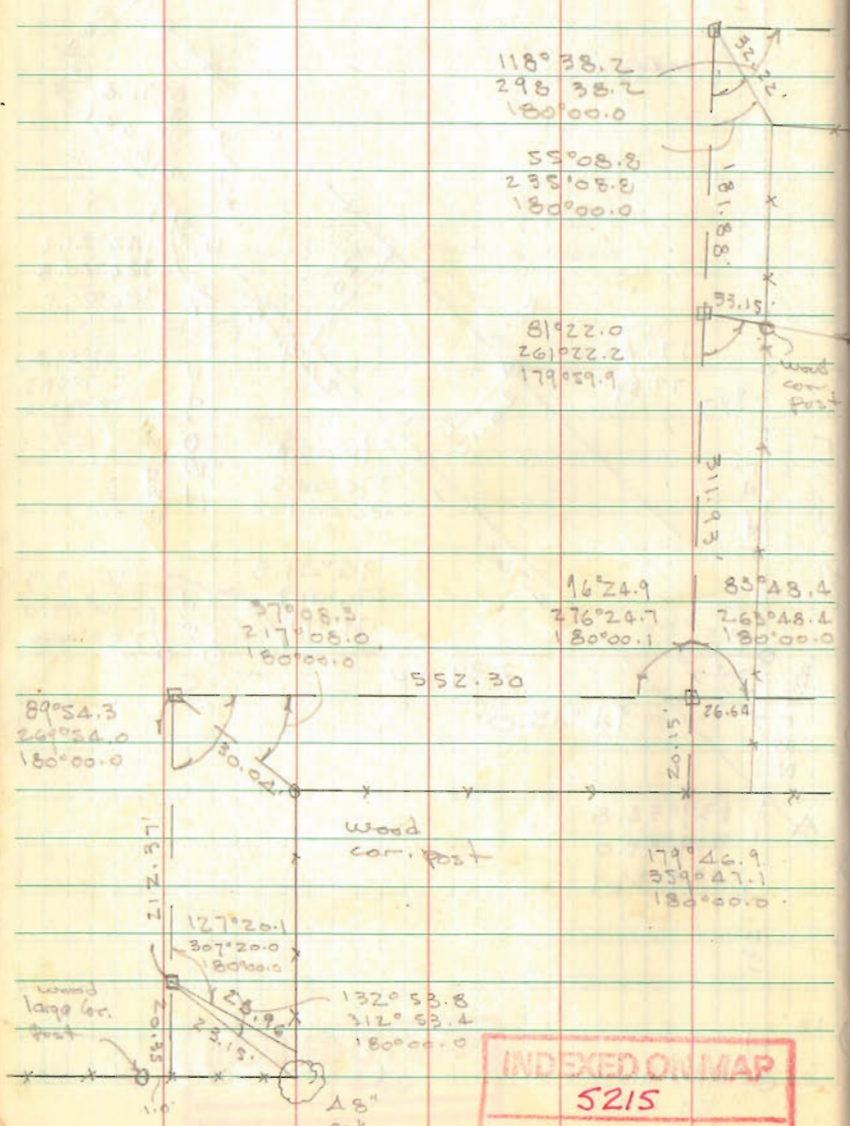 118° 38.2
298 38.2
180°00.0
32.22'
55°08.8
235°08.8
180°00.0
181.88'
33.15'
81°22.0
261°22.2
179°59.9
wood
cor.
post
311.93'
96°24.9
276°24.7
180°00.1
83°48.4
263°48.4
180°00.0
37°08.3
217°08.0
180°00.0
552.30
89°54.3
269°54.0
180°00.0
30.04'
26.64
20.15'
wood
cor. post
179°46.9
359°47.1
180°00.0
212.37'
127°20.1
307°20.0
180°00.0
wood
large cor.
post
28.96
23.15'
132° 53.8
312° 53.4
180°00.0
20.35
1.0'
48"
INDEXED ON MAP
5215